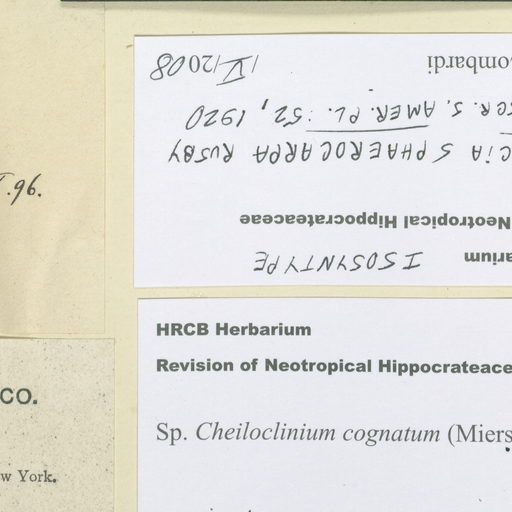 ISOSYNTYPE
arium
Neotropical Hippocrateaceae
CIA SPHAEROCARPA RUSBY
CR. S. AMER. PL.: 52, 1920
ombardi
/V/2008
.96.
HRCB Herbarium
Revision of Neotropical Hippocrateace
Sp. Cheiloclinium cognatum (Miers
CO.
w York.